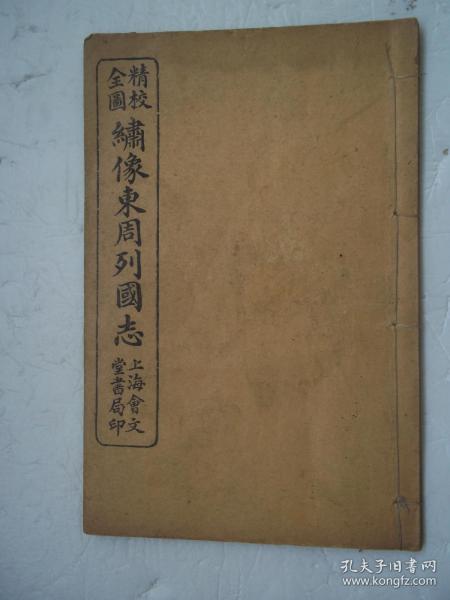 精校
全圖
繡像東周列國志
上海會文
堂書局印
孔夫子旧书网
www.kongfz.com